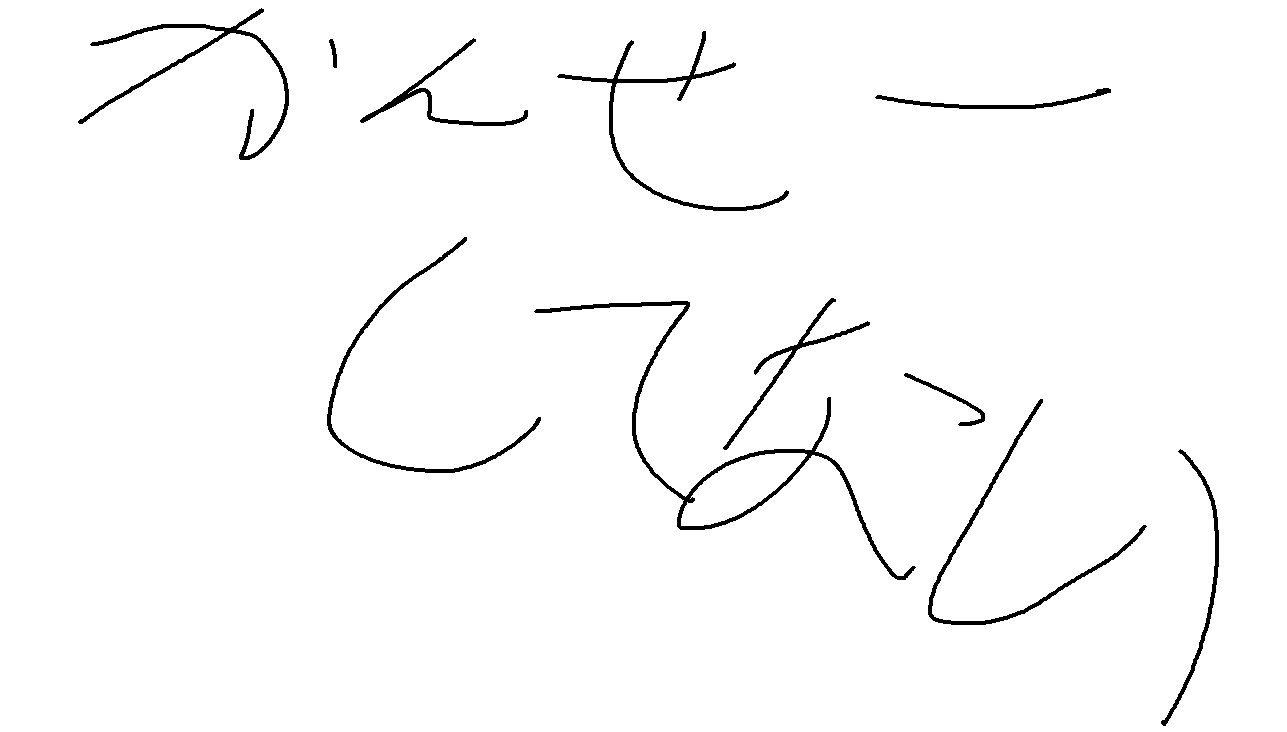 かんせー
してない